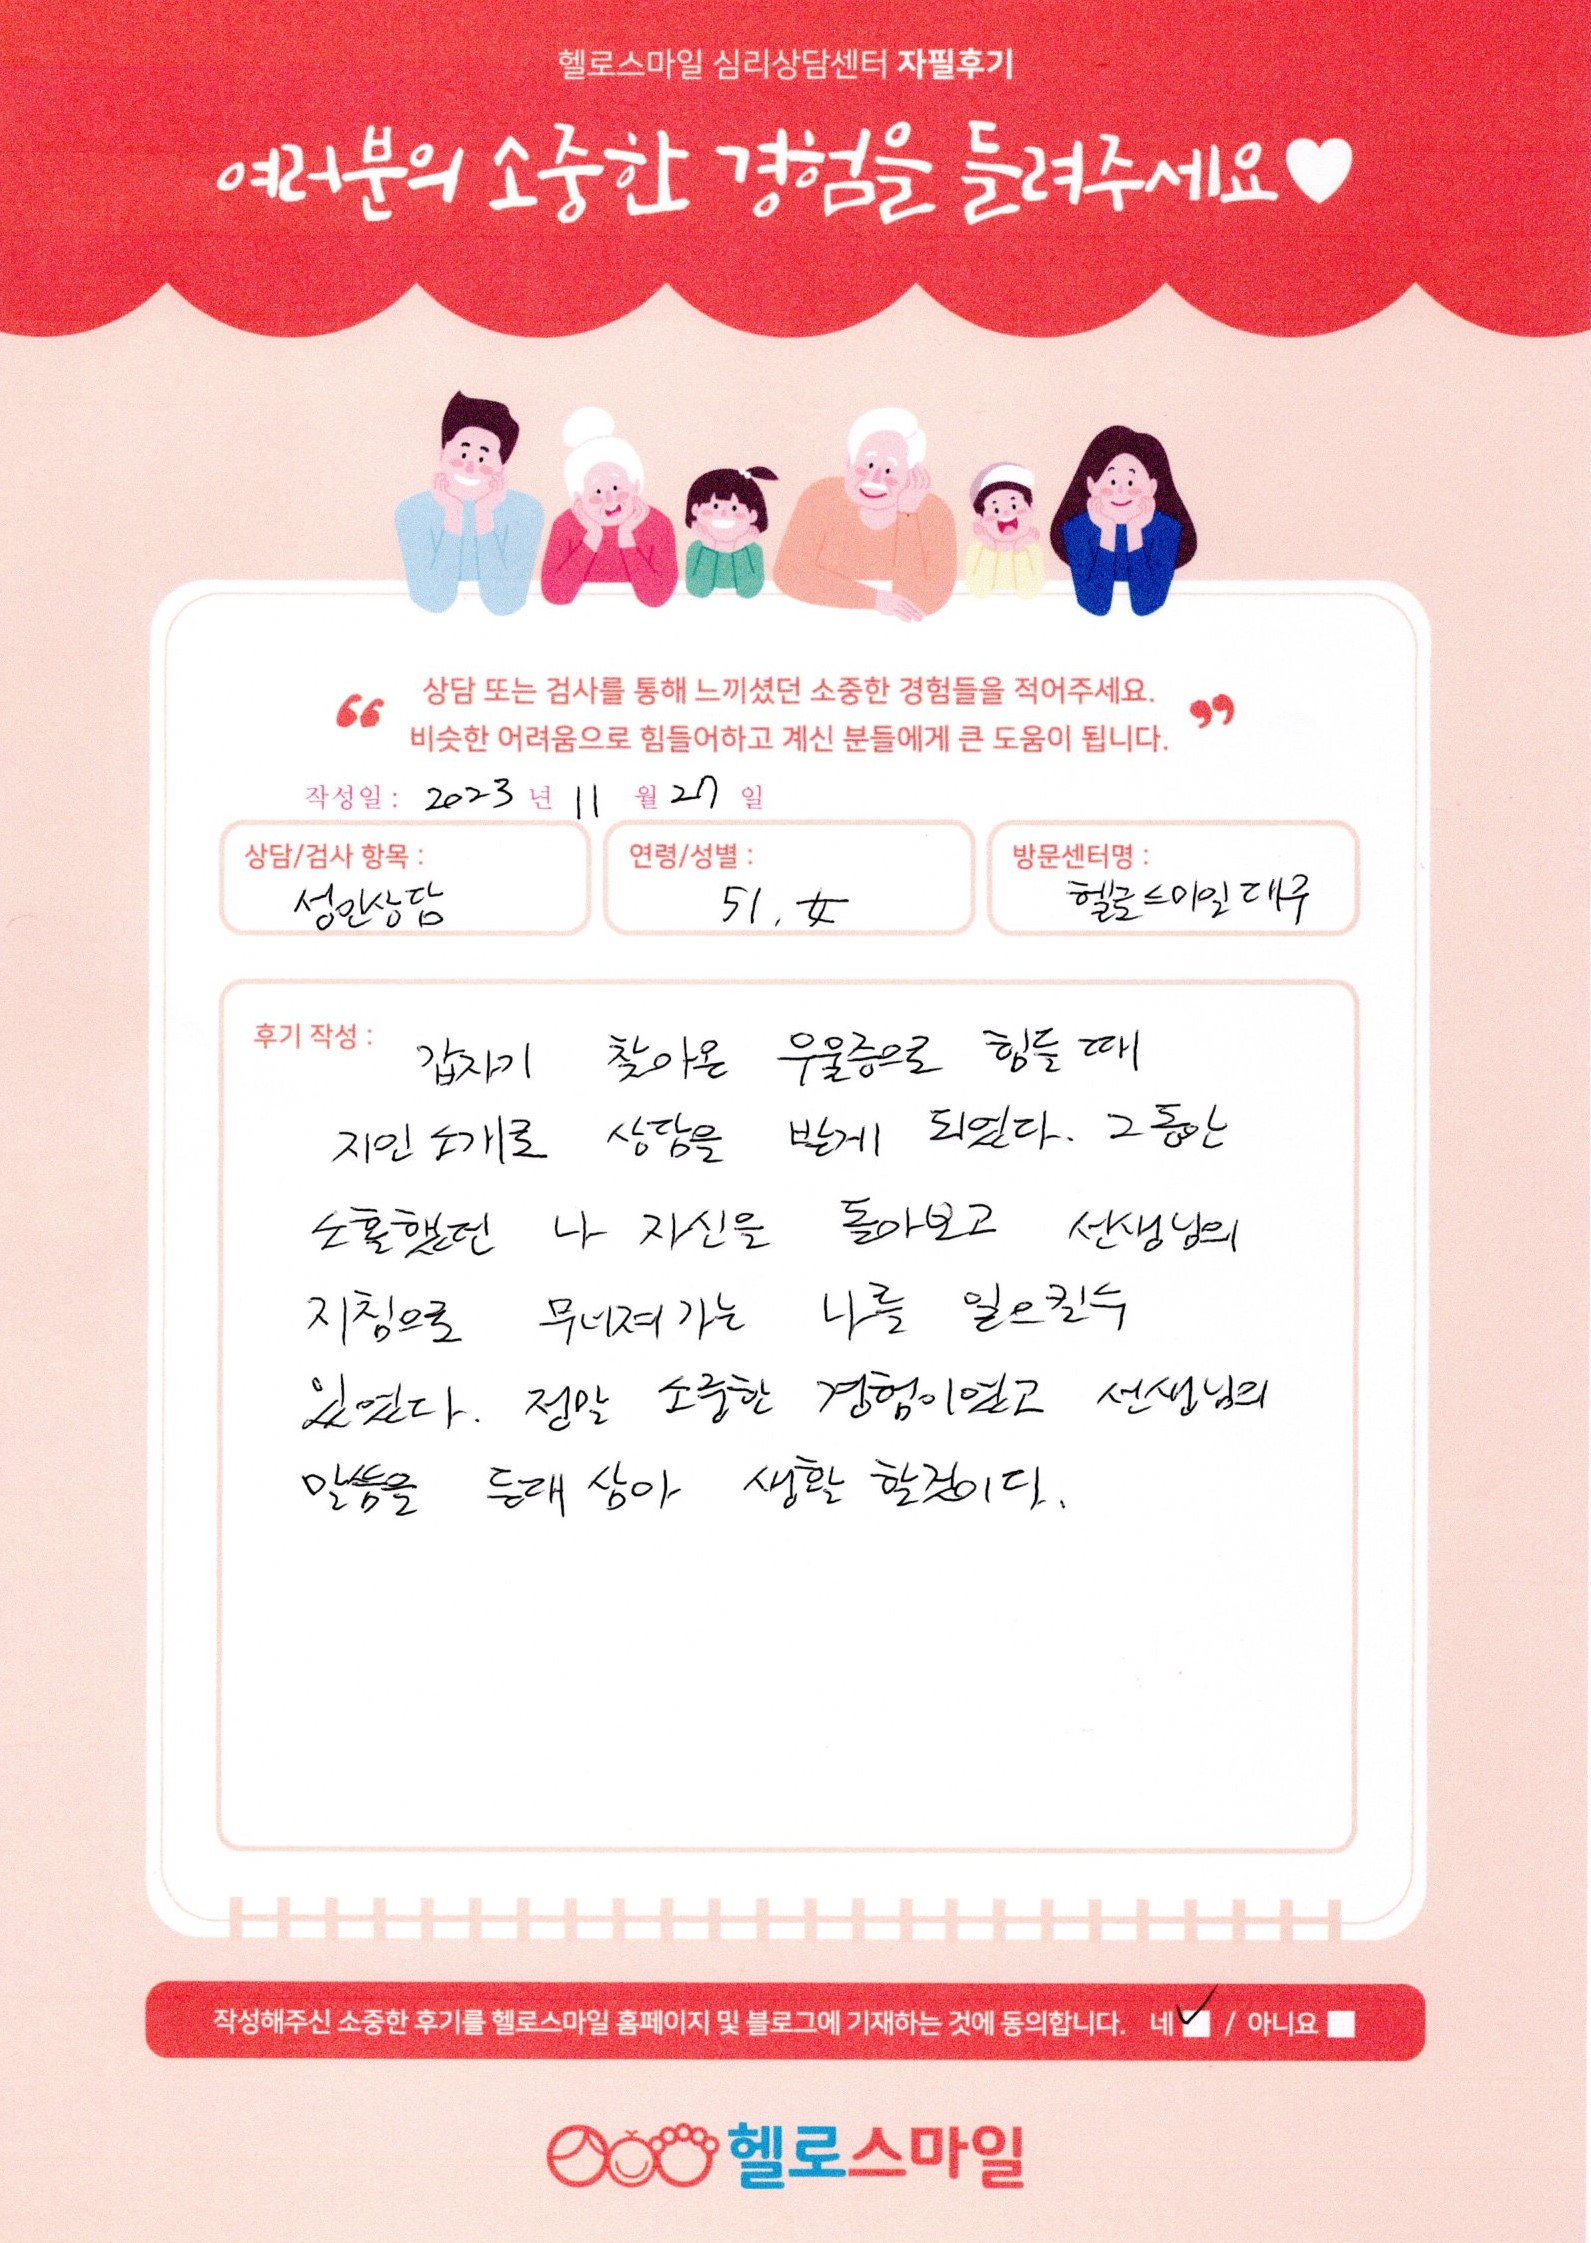 헬로스마일 심리상담센터 자필후기
여러분의 소중한 경험을 들려주세요
상담 또는 검사를 통해 느끼셨던 소중한 경험들을 적어주세요.
비슷한 어려움으로 힘들어하고 계신 분들에게 큰 도움이 됩니다.
작성일 : 2023 년 11 월 27 일
상담/검사 항목 : 연령/성별 : 방문센터명 :
성인상담 51, 女 헬로스마일대구
후기 작성 : 갑자기 찾아온 우울증으로 힘들 때
지인 소개로 상담을 받게 되었다. 그동안
소홀했던 나 자신을 돌아보고 선생님의
지침으로 무너져 가는 나를 일으킬수
있었다. 정말 소중한 경험이었고 선생님의
말씀을 등대 삼아 생활 할것이다.
작성해주신 소중한 후기를 헬로스마일 홈페이지 및 블로그에 기재하는 것에 동의합니다. 네 / 아니요
헬로스마일